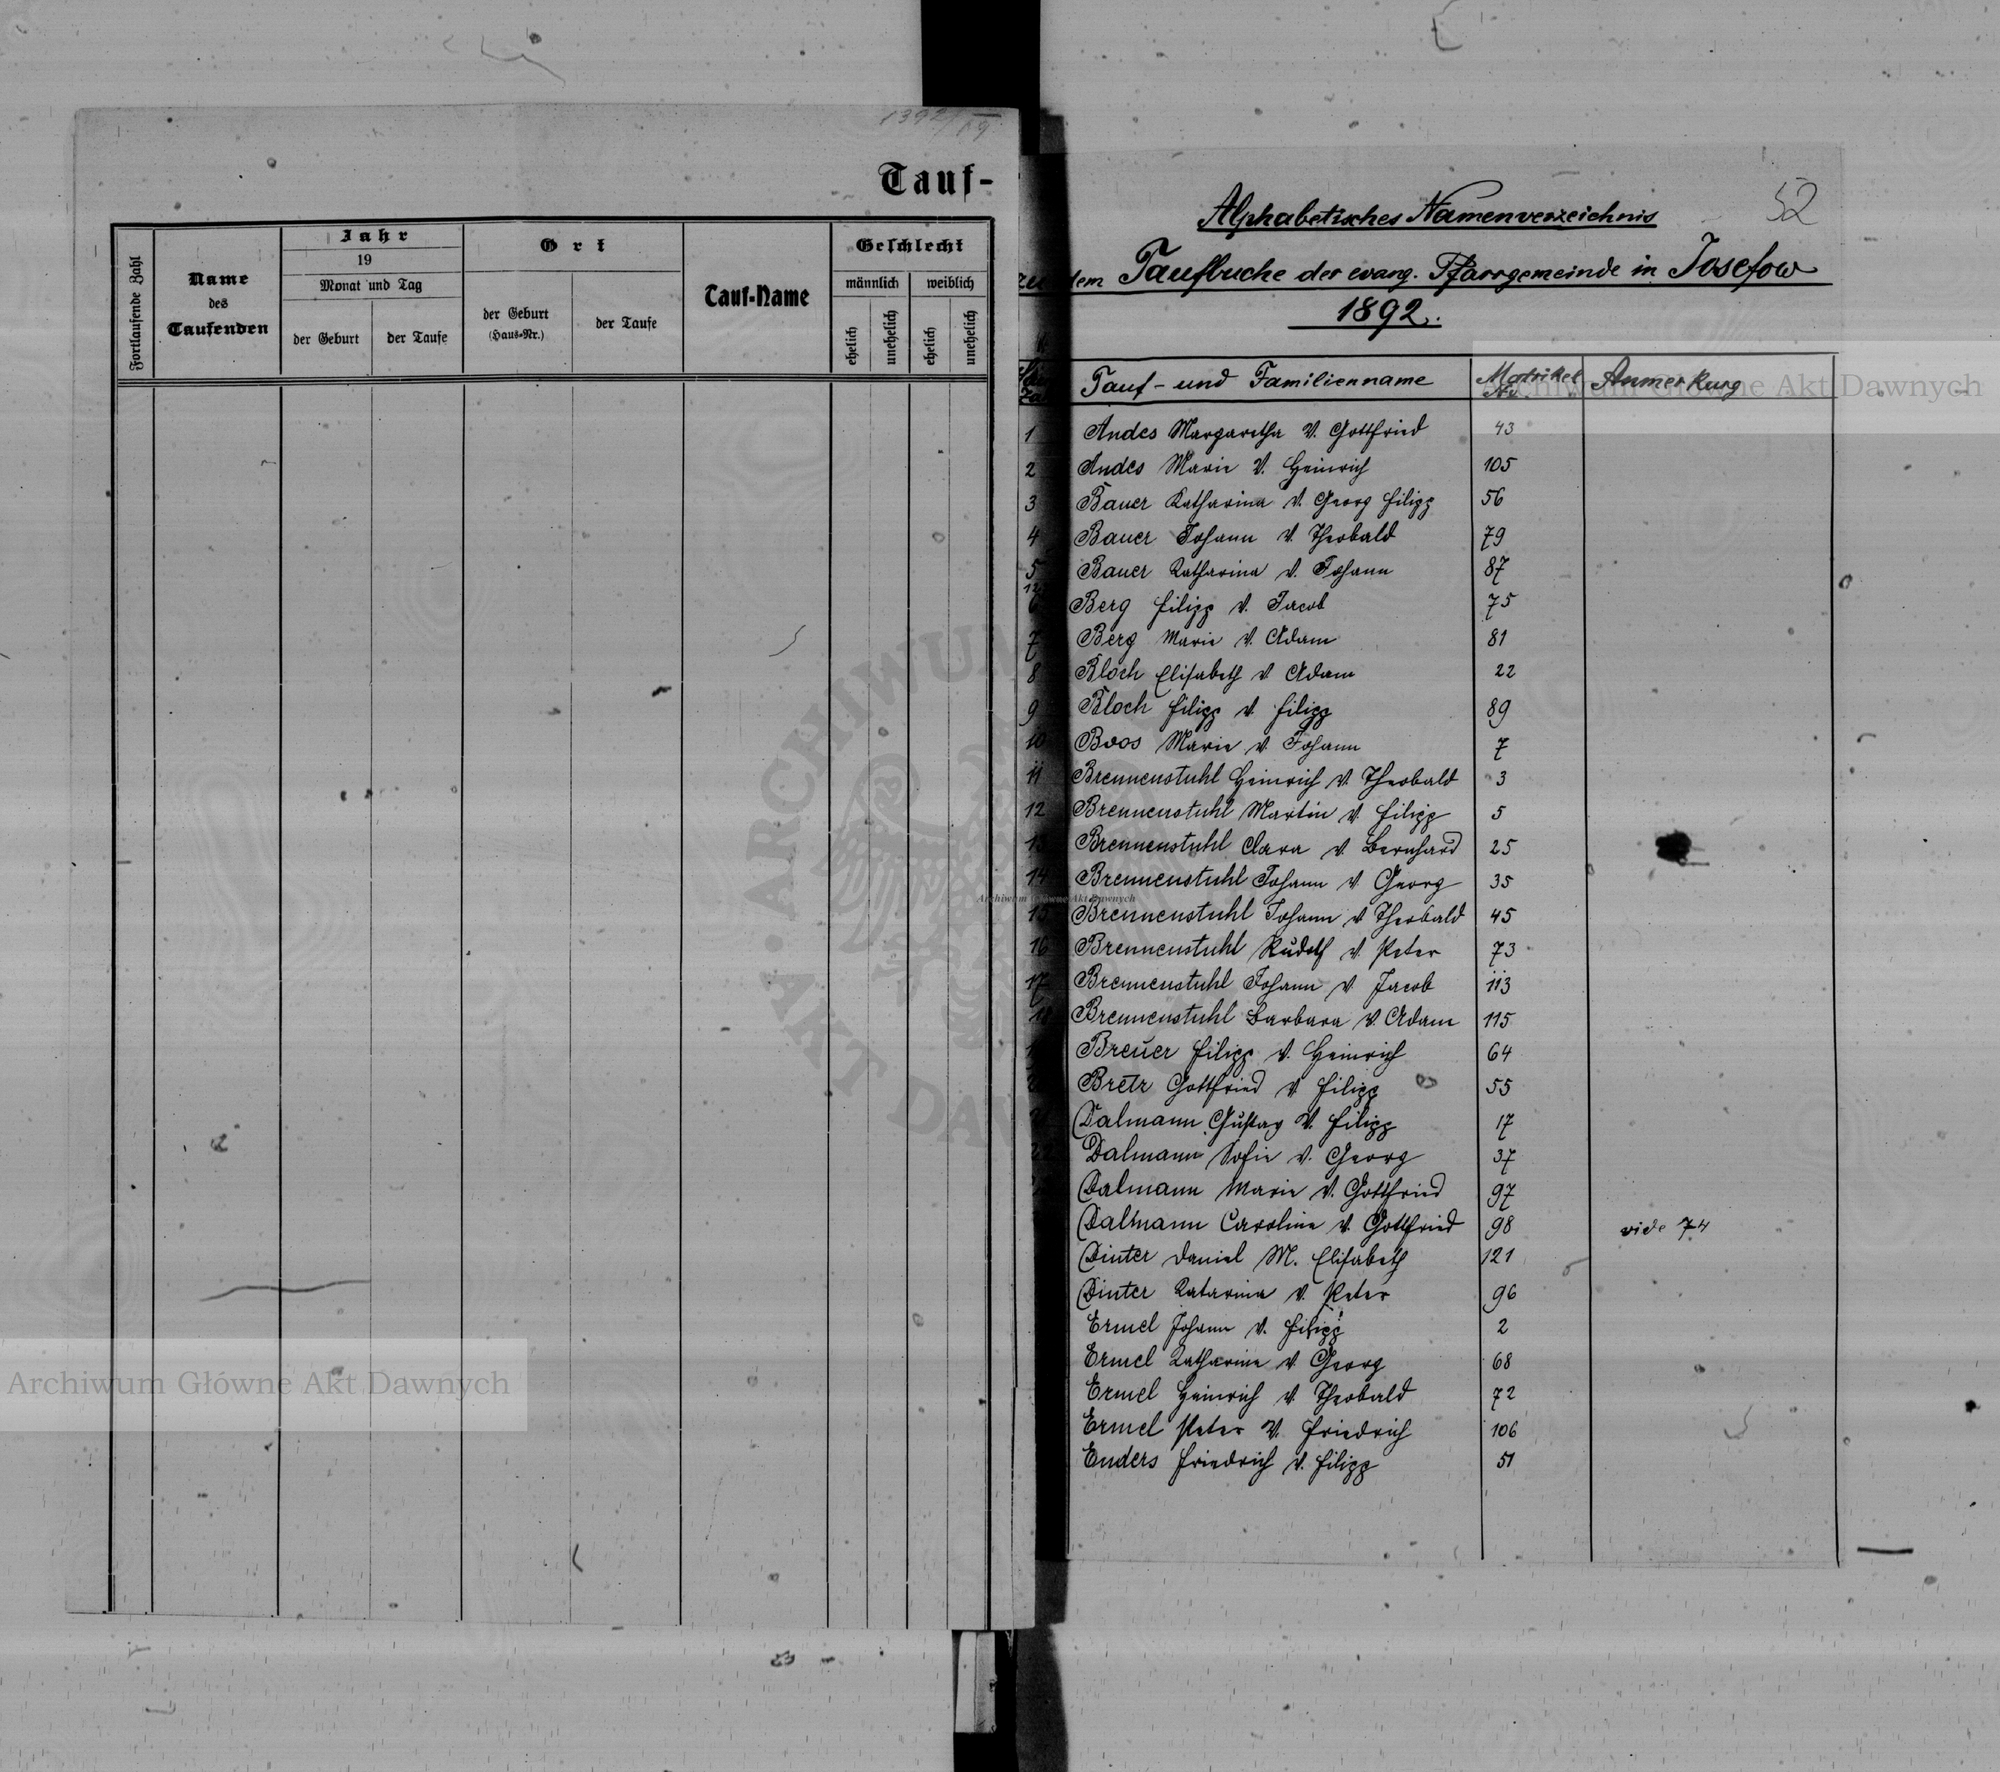 1392/19
Tauf-
Fortlaufende Zahl
Name
des
Taufenden
Jahr
19
Monat und Tag
der Geburt
der Taufe
Ort
der Geburt
(Haus-Nr.)
der Taufe
Tauf-Name
Geschlecht
männlich
weiblich
ehelich
unehelich
ehelich
unehelich
52
Alphabetisches Namenverzeichnis
zu dem Taufbuche der evang. Pfarrgemeinde in Josefow
1892.
Tauf- und Familienname Matrikel Nr. Anmerkung
1 Andes Margaretha V. Gottfried 43
2 Andes Marie V. Heinrich 105
3 Bauer Katharina V. Georg Filipp 56
4 Bauer Johann V. Theobald 79
5 Bauer Katharina V. Johann 87
6 Berg Filipp V. Jacob 75
7 Berg Marie V. Adam 81
8 Bloch Elisabeth V Adam 22
9 Bloch Filipp V. Filipp 89
10 Boos Marie V. Johann 7
11 Brennenstuhl Heinrich V. Theobald 3
12 Brennenstuhl Martin V. Filipp 5
13 Brennenstuhl Clara V. Bernhard 25
14 Brennenstuhl Johann V. Georg 35
15 Brennenstuhl Johann V Theobald 45
16 Brennenstuhl Rudolf V. Peter 73
17 Brennenstuhl Johann V. Jacob 113
18 Brennenstuhl Barbara V. Adam 115
Breuer Filipp V. Heinrich 64
Bretz Gottfried V Filipp 55
Dalmann Gustav V. Filipp 17
Dalmann Sofie V. Georg 37
Dalmann Marie V. Gottfried 97
Dalmann Caroline V. Gottfried 98 vide 74
Dinter Daniel M. Elisabeth 121
Dinter Katarina V. Peter 96
Ermel Johann V. Filipp 2
Ermel Katharina V. Georg 68
Ermel Heinrich V. Theobald 72
Ermel Peter V. Friedrich 106
Enders Friedrich V. Filipp 51
Archiwum Główne Akt Dawnych
Archiwum Główne Akt Dawnych
Archiwum Główne Akt Dawnych